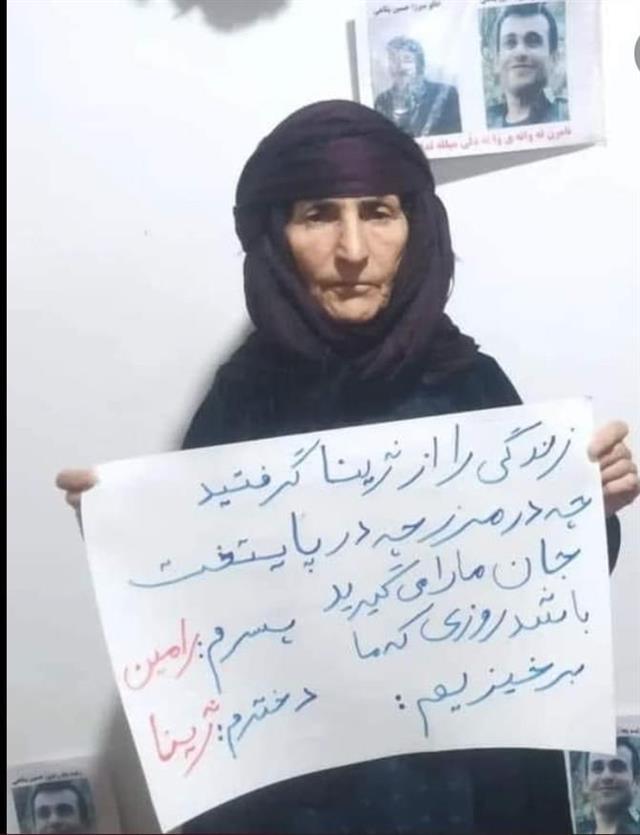 میرزا حسین پناهی
نامرن ئه وانه ی وا له دلی میلله
زندگی را از ژینا گرفتید
چه در مرز چه در پایتخت
جان ما را می گیرید
باشد روزی که ما پسرم: رامین
برخیزیم: دخترم: ژینا